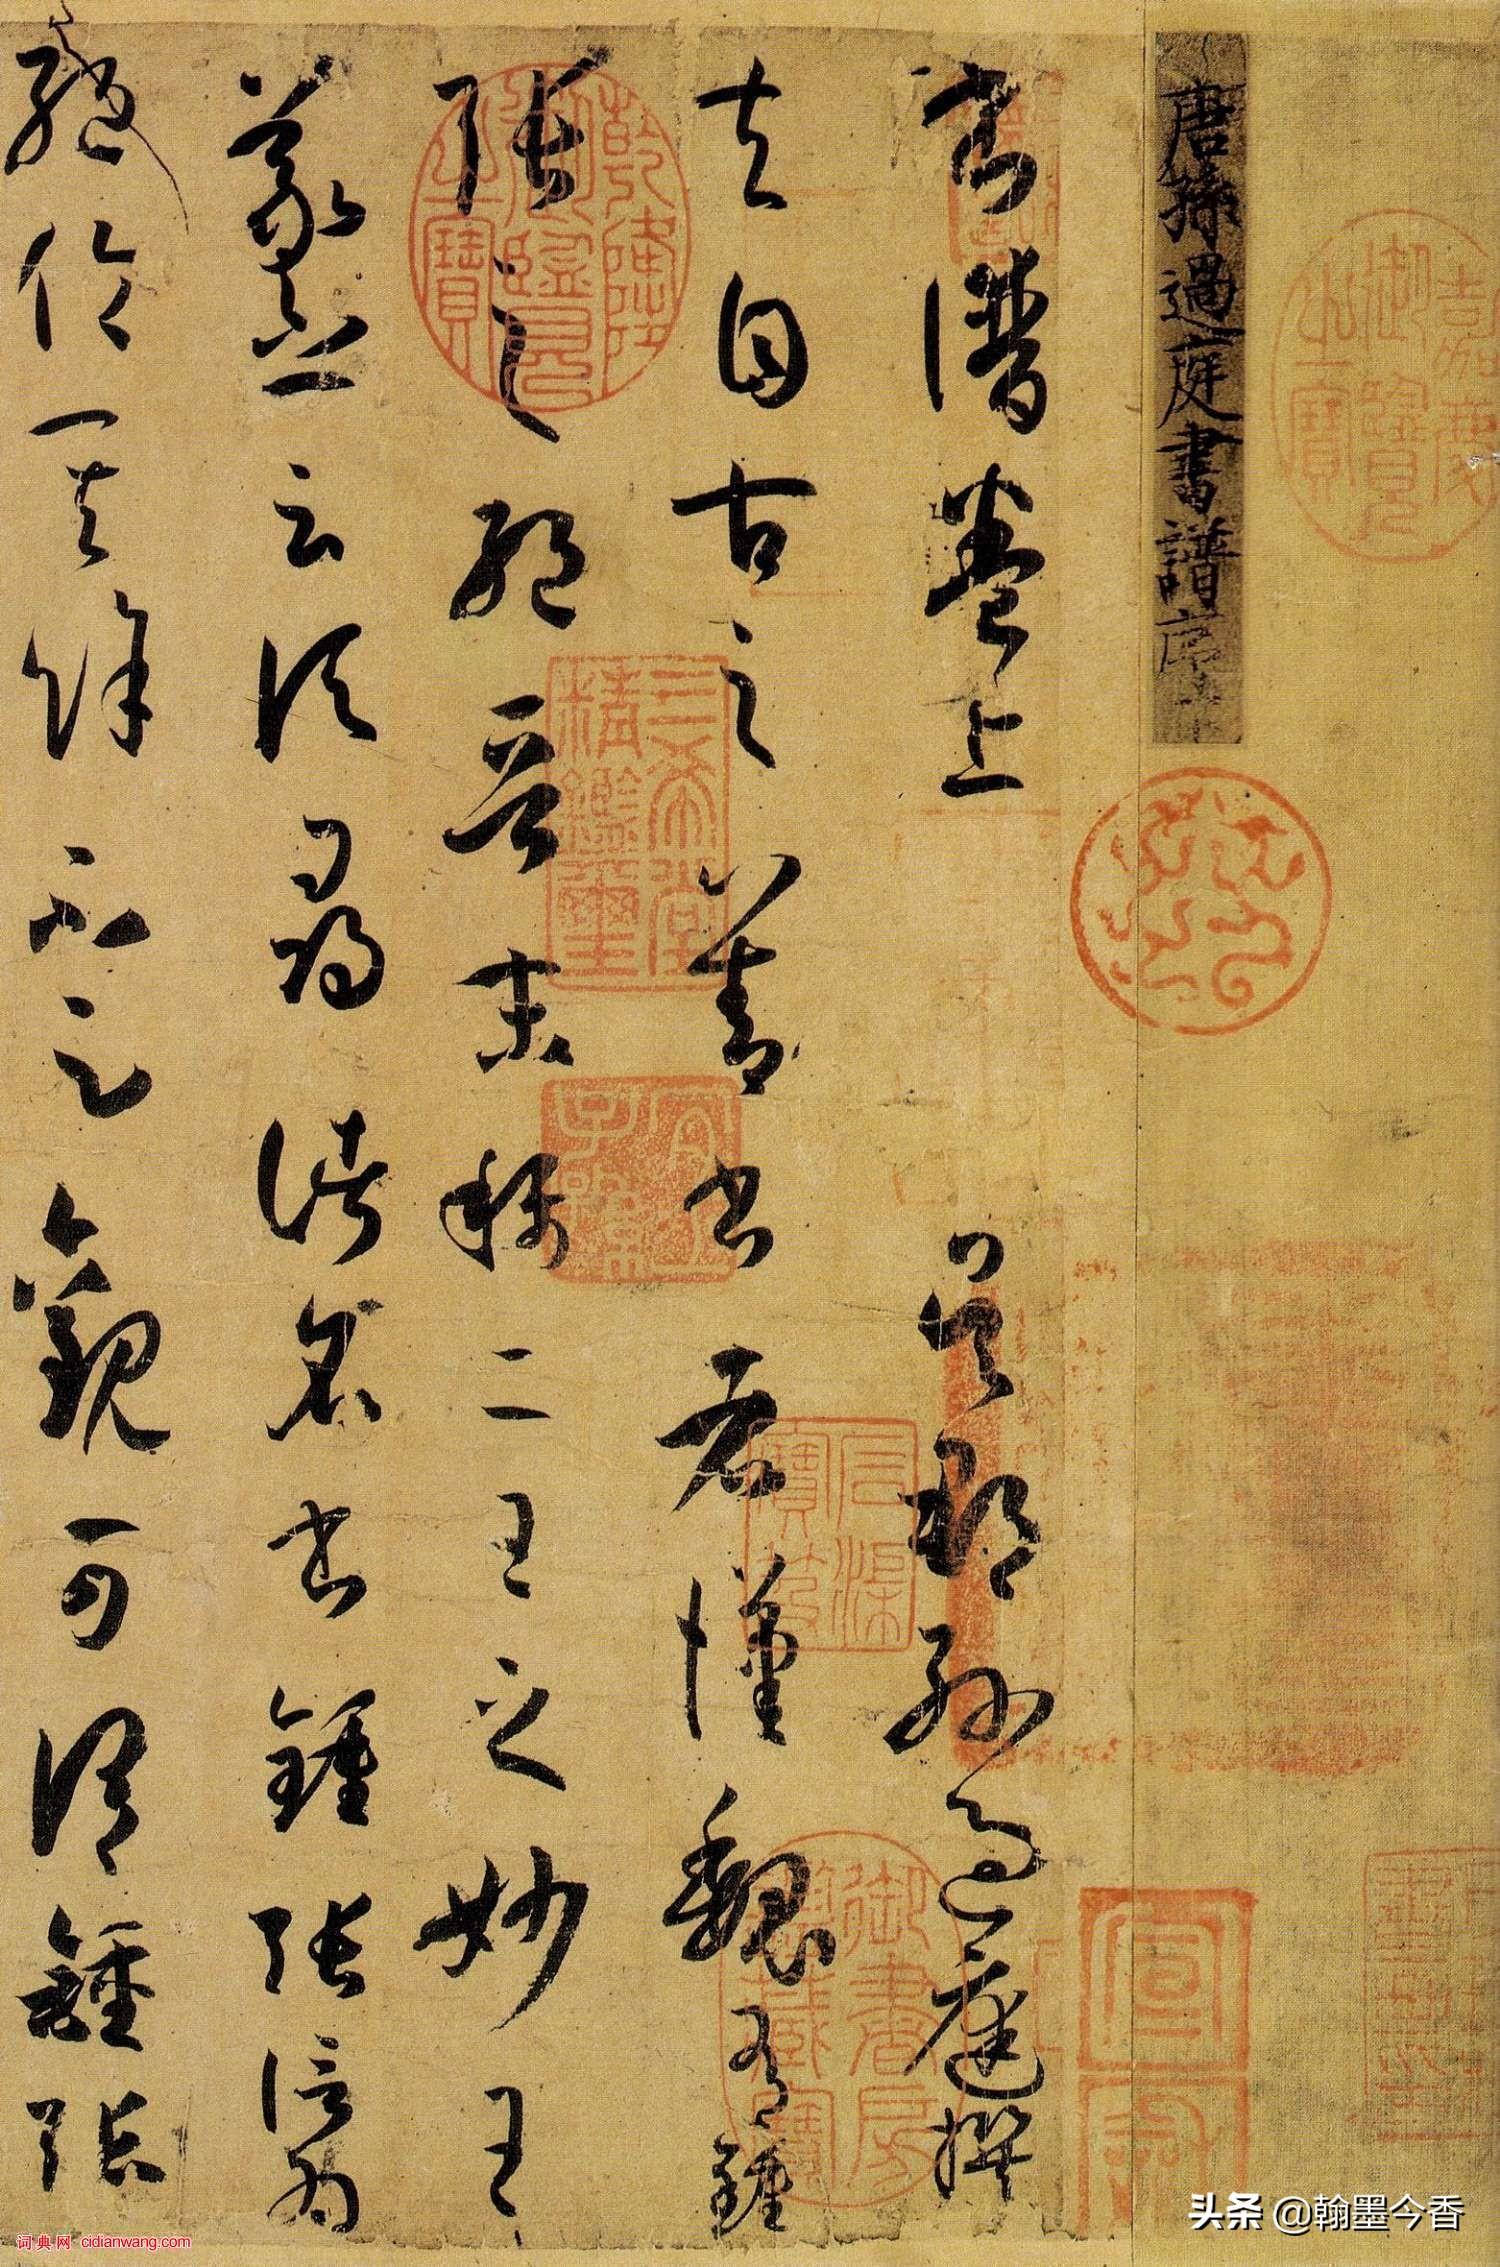 嘉慶
御覽
之寶
唐孫過庭書譜序
書譜卷上 吳郡孫過庭撰
夫自古之善書者漢魏有鍾
張之絕晉末稱二王之妙王
羲之云頃尋諸名書鍾張信為
絕倫其餘不足觀可謂鍾張
乾隆
御覽
之寶
三希堂
精鑑璽
宜
子孫
石渠
寶笈
御書房
鑑藏寶
宣
龢
头条 @翰墨今香
词典网 cidianwang.com